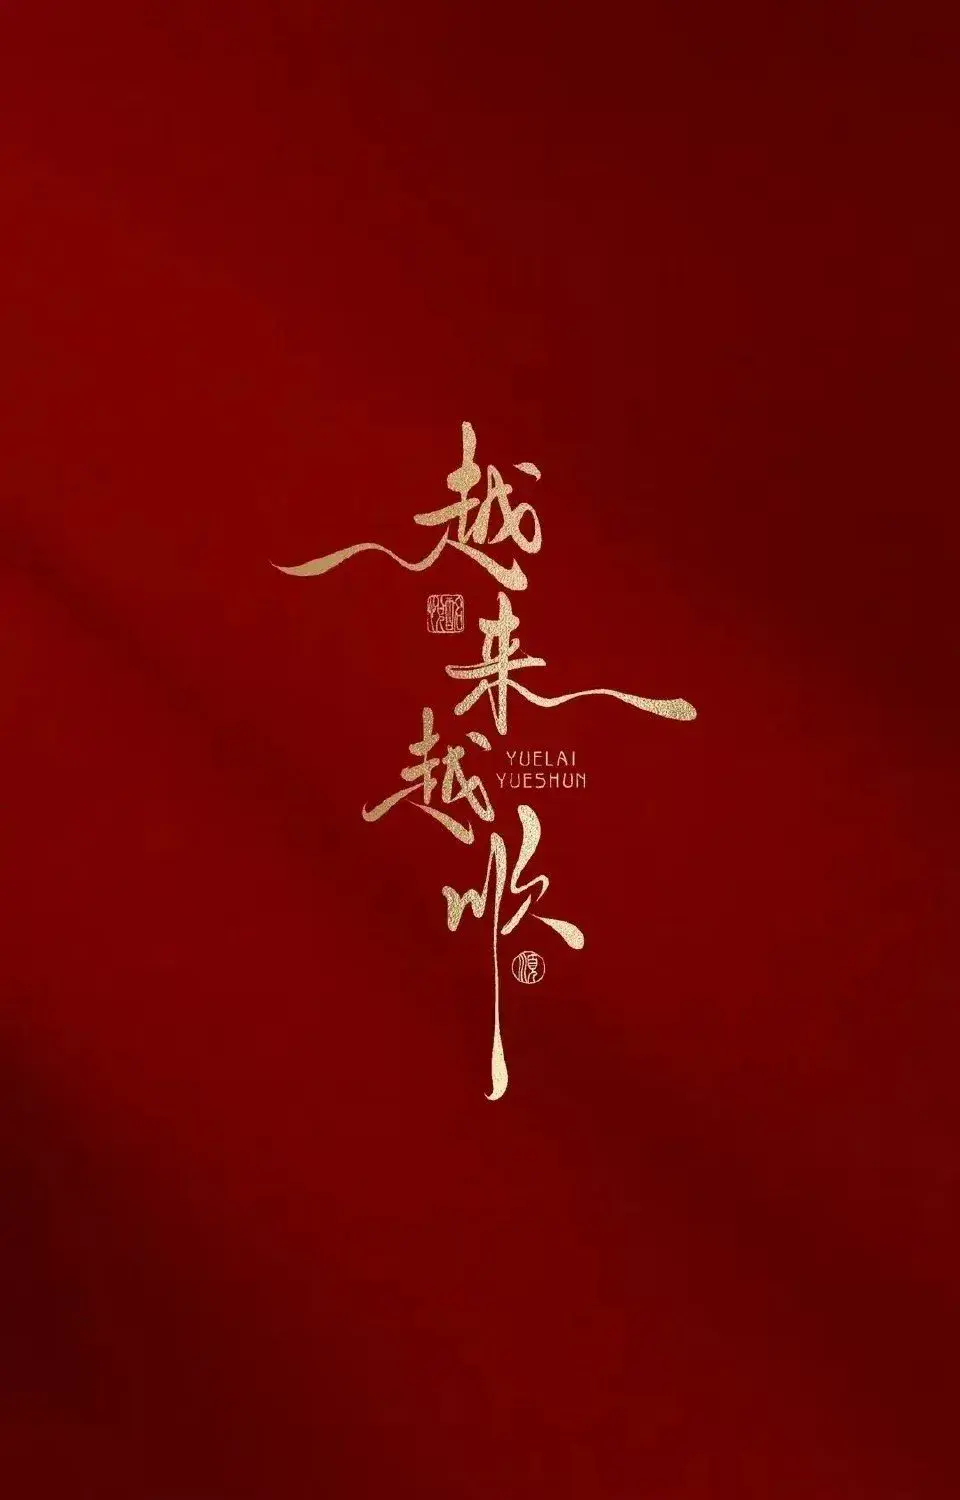 越来越顺
YUELAI
YUESHUN
順